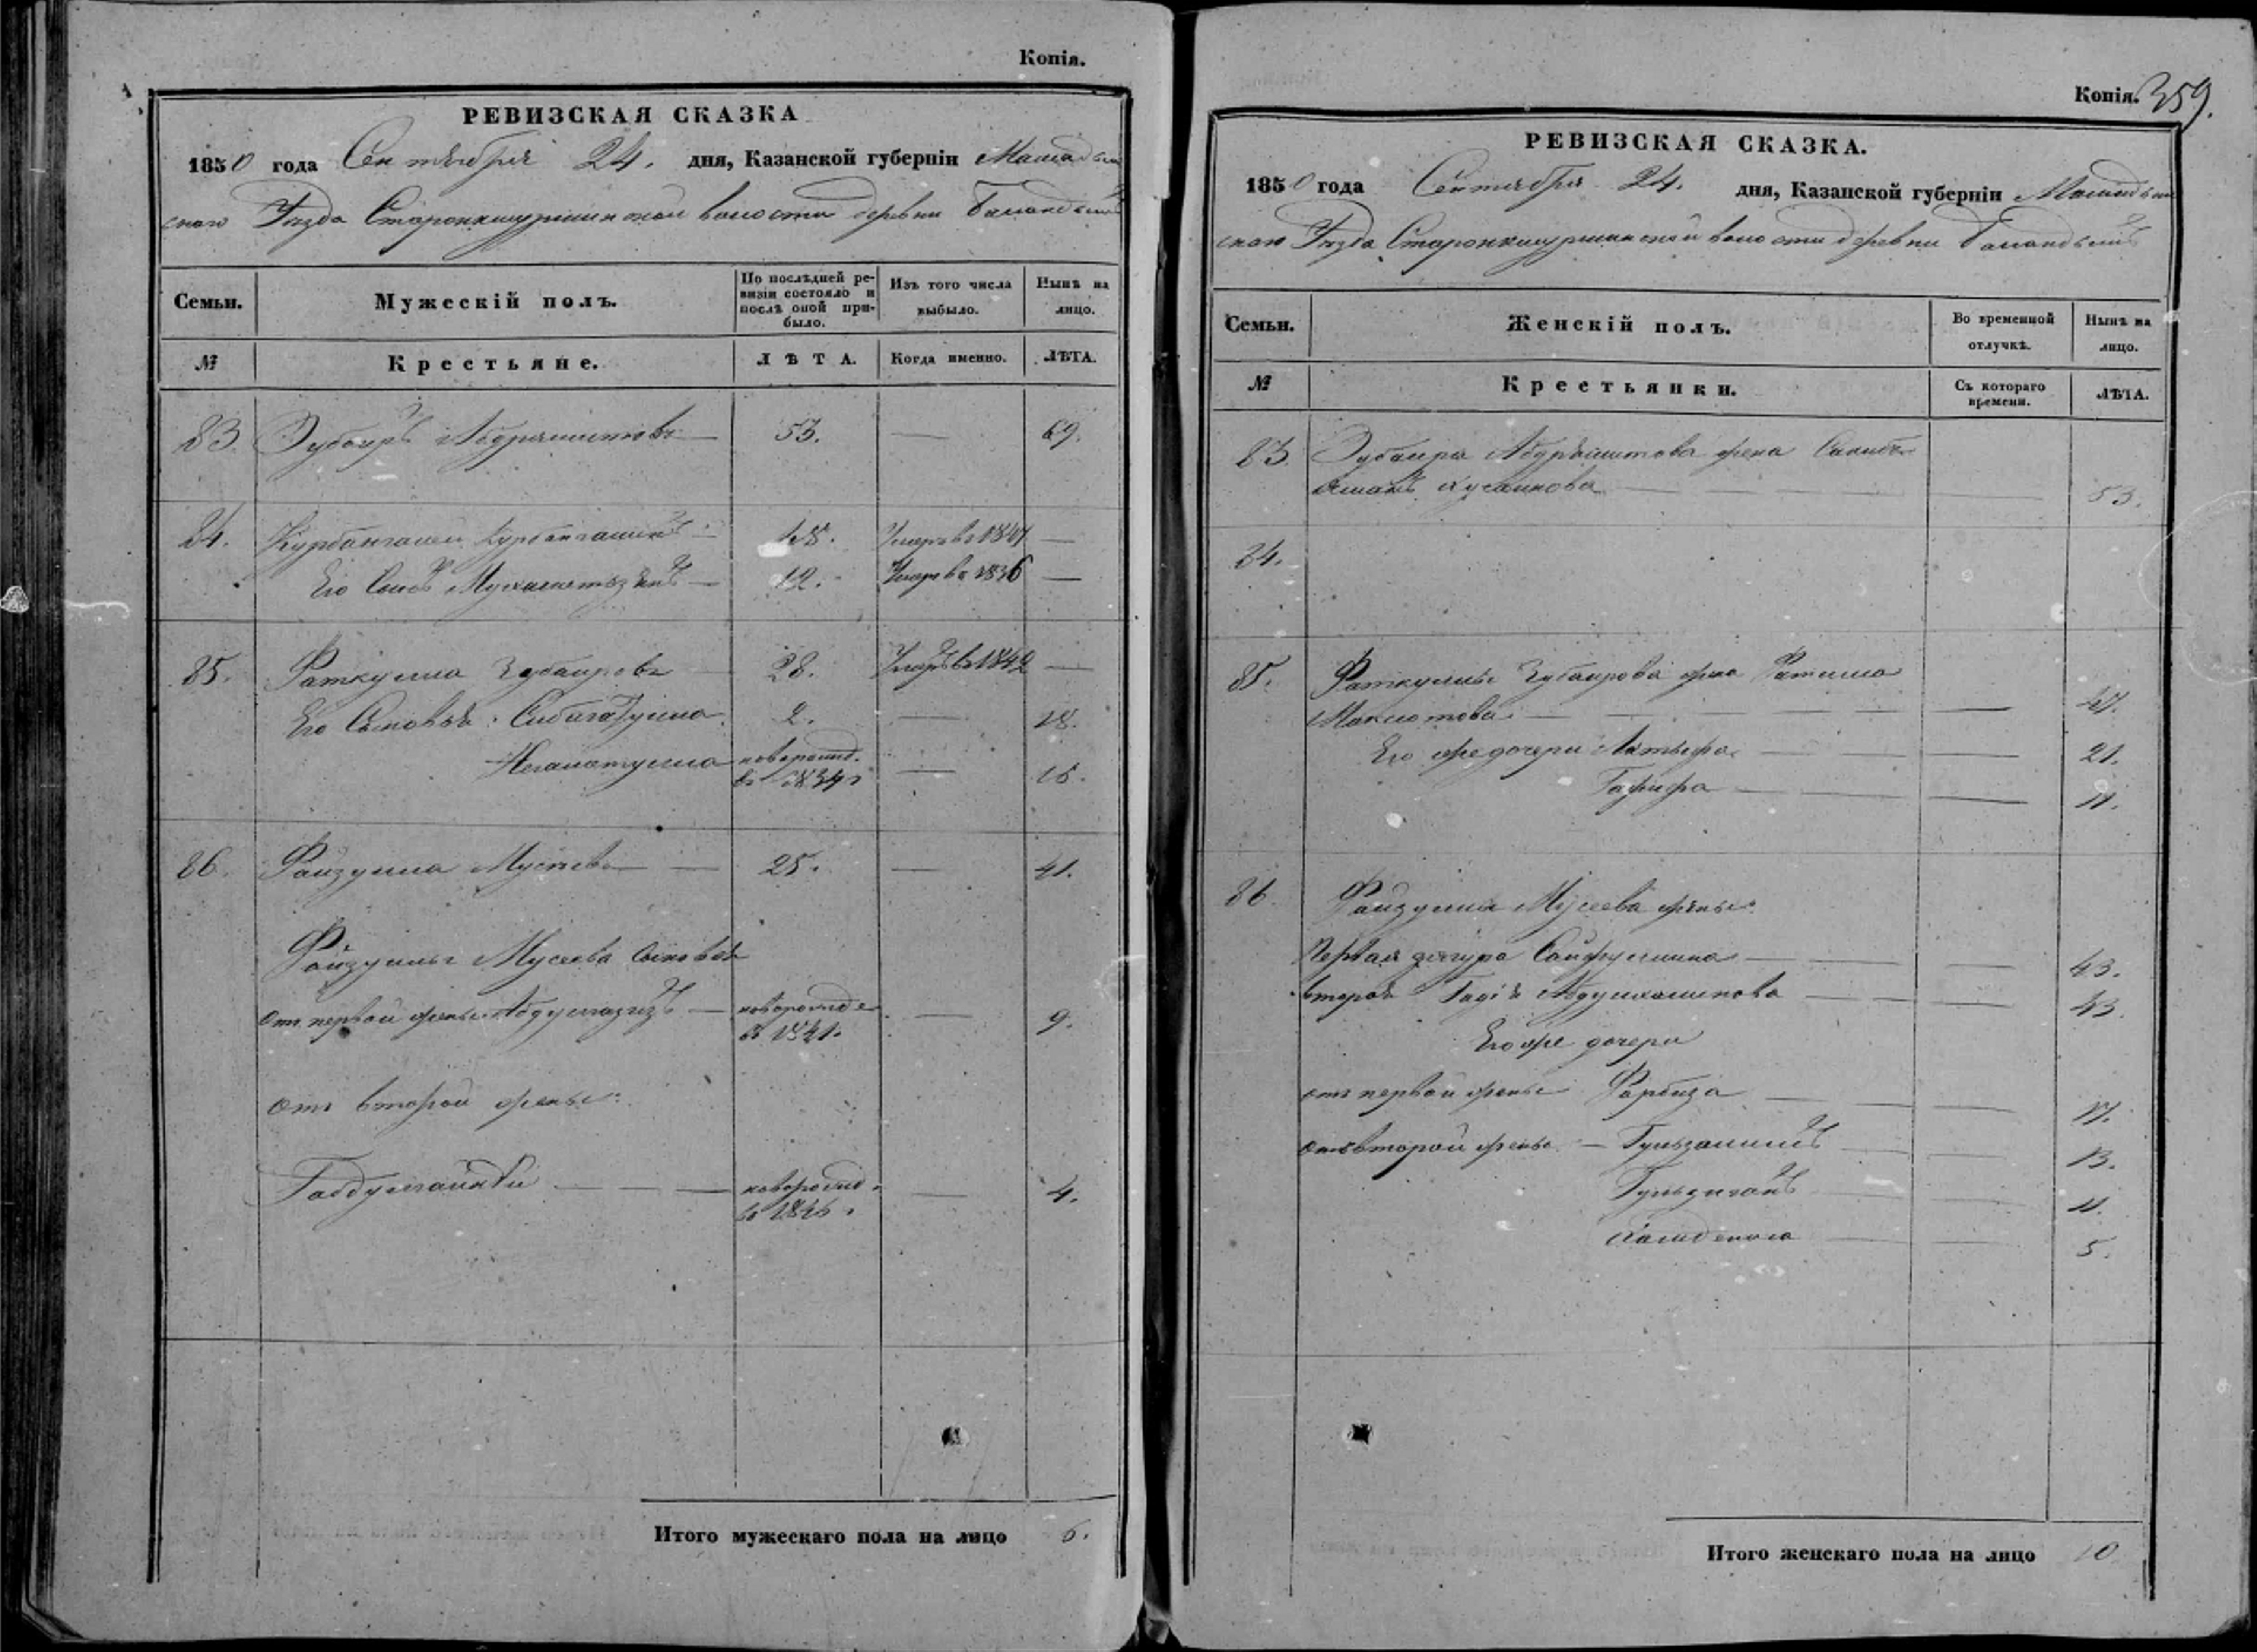 Копія.
РЕВИЗСКАЯ СКАЗКА
1850 года Сентября 24. дня, Казанской губерніи Мамадыш
скаго Уѣзда Старокишуршинской волости деревни
Семьи. Мужескій полъ. По послѣдней ре-визіи состояло и послѣ оной при-было. Изъ того числа выбыло. Нынѣ на лицо.
№ Крестьяне. ЛѢТА. Когда именно. ЛѢТА.
83. Зубаиръ Абдряшитовъ — 53. — 69.
84. Курбангалей Курбангалинъ — 48. Умеръ в 1847 —
Его Сынъ — 12. Умеръ в 1836 —
85. Фаткулла Зубаировъ — 28. Умеръ в 1842 —
Его Сыновья: Сибагатулла 2. — 18.
Неаматулла новорожд. — 15.
в 1834 г
86. Файзулла Мусеевъ — 25. — 41.
Файзуллы Мусеева сыновья
отъ первой жены Абдулгазизъ — новорожде — 9.
в 1841.
отъ второй жены:
— новорожд. — 4.
в 1846.
Итого мужескаго пола на лицо 6.
Копія. 359.
РЕВИЗСКАЯ СКАЗКА.
1850 года Сентября 24. дня, Казанской губерніи Мамадыш
скаго Уѣзда Старокишуршинской волости деревни
Семьи. Женскій полъ. Во временной отлучкѣ. Нынѣ на лицо.
№ Крестьянки. Съ котораго времени. ЛѢТА.
83. Зубаира Абдряшитова жена
Хусаинова — — 53.
84.
85. Фаткуллы Зубаирова жена Фатима
Максютова — — 47.
Его же дочери — — 21.
Гафифа — — 11.
86. Файзуллы Мусеева жены:
первая Сайфуллина — — 43.
вторая — — 43.
Его же дочери
отъ первой жены Фарбиза — — 17.
отъ второй жены — — — 13.
— — 11.
— — 5.
Итого женскаго пола на лицо 10.